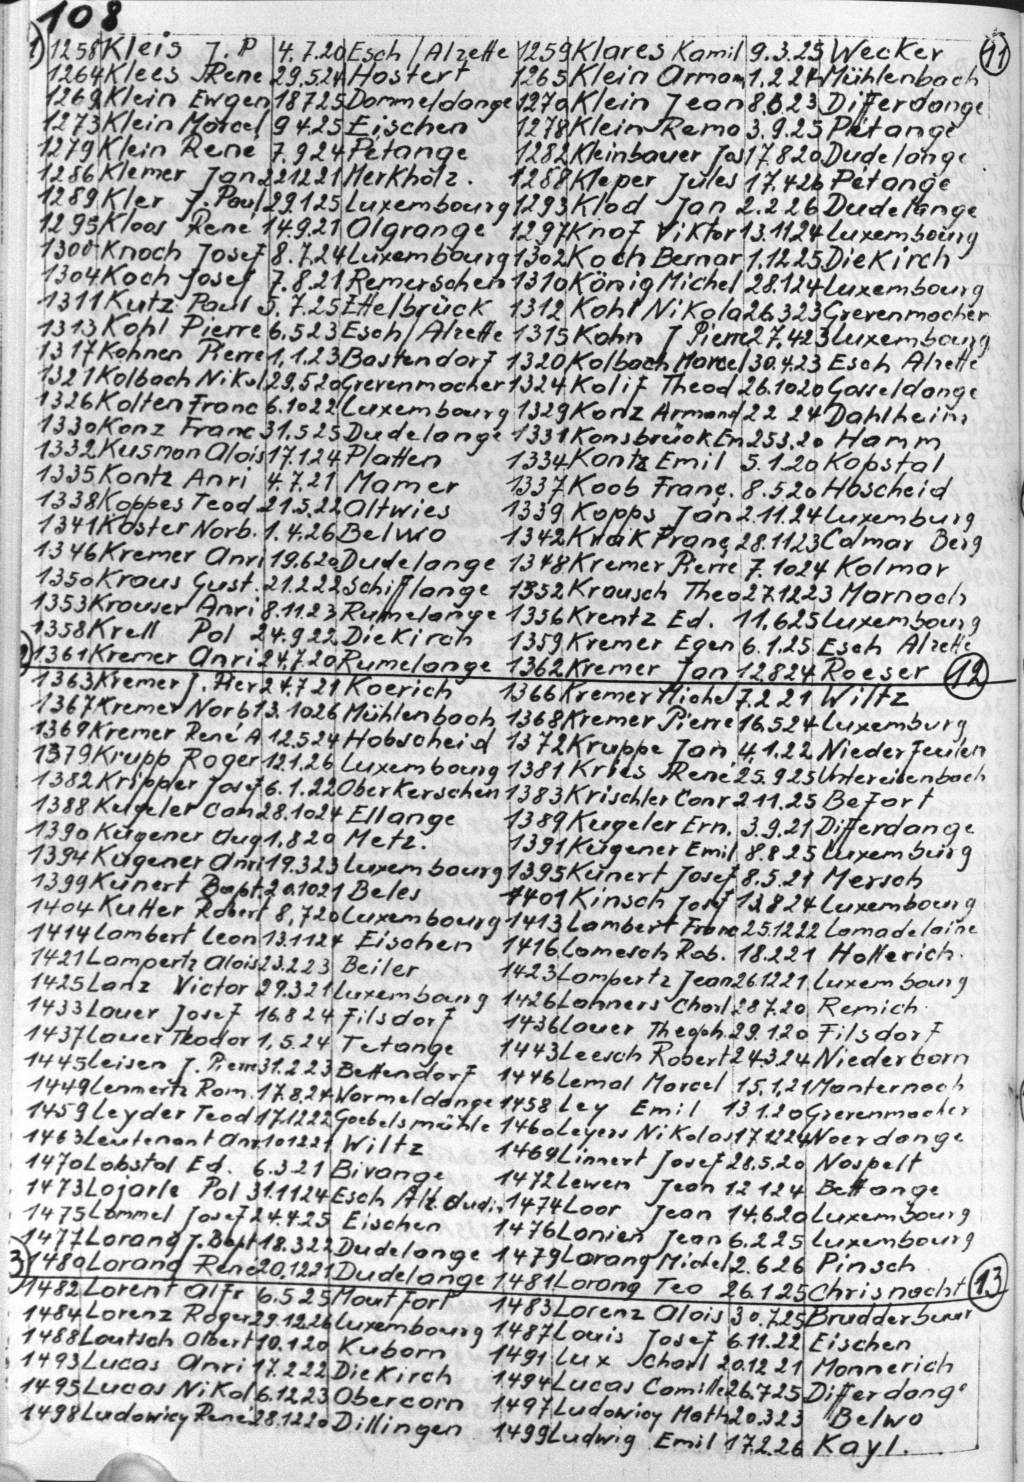 108
1) 1258 Kleis J. P 4.7.20 Esch / Alzette 1259 Klares Kamil 9.3.25 Wecker 11
1264 Klees Rene 29.524 Hostert 1265 Klein Arman 1.2.24 Mühlenbach
1269 Klein Ewgen 18725 Dommeldange 1270 Klein Jean 8.6.23 Differdange
1273 Klein Marcel 9 4.25 Eischen 1278 Klein Remo 3.9.25 Pétange
1279 Klein Rene 7.924 Petange 1282 Kleinbauer Jos 17.820 Dudelange
1286 Klemer Jan 221221 Merkholz. 1288 Kleper Jules 17.426 Pétange
1289 Kler J. Paul 29.125 Luxembourg 1293 Klod Jan 2.2.26 Dudelange
1295 Kloos Rene 14.9.21 Olgrange 1297 Knof Viktor 13.1124 Luxembourg
1300 Knoch Josef 8.7.24 Luxembourg 1302 Koch Bernar 1.1225 Diekirch
1304 Koch Josef 7.8.21 Remerschen 1310 König Michel 28.124 Luxembourg
1311 Kutz Paul 5.7.25 Ettelbrück 1312 Kohl Nikola 26.323 Grevenmacher
1313 Kohl Pierre 6.523 Esch / Alzette 1315 Kohn J Pierre 27.423 Luxembourg
1317 Kohnen Pierre 1.1.23 Bastendorf 1320 Kolbach Marcel 30.4.23 Esch Alzette
1321 Kolbach Nikol 29.520 Grevenmacher 1324 Kolif Theod 26.1020 Gosseldange
1326 Kolten Franc 6.1022 Luxembourg 1329 Konz Armand 22 24 Dahlheim
1330 Konz Franc 31.525 Dudelange 1331 Konsbrück En 253.20 Hamm
1332 Kusman Alois 17.124 Platten 1334 Kontz Emil 5.1.20 Kopstal
1335 Kontz Anri 4.7.21 Mamer 1337 Koob Franç. 8.520 Hoscheid
1338 Koppes Teod 21.5.22 Altwies 1339 Kopps Jan 2.11.24 Luxemburg
1341 Koster Norb. 1.4.26 Belwo 1342 Krak Franç 28.1123 Colmar Berg
1346 Kremer Anri 19.620 Dudelange 1348 Kremer Pierre 7.1024 Kolmar
1350 Kraus Gust. 21.222 Schifflange 1352 Krausch Theo 27.1223 Marnach
1353 Krauser Anri 8.11.23 Rumelange 1356 Krentz Ed. 11.625 Luxembourg
1358 Krell Pol 24.9.22 Diekirch 1359 Kremer Egen 6.1.25 Esch Alzette
1361 Kremer Anri 24.7.20 Rumelange 1362 Kremer Jan 12824 Roeser 12
1363 Kremer J. Pier 24.7.21 Koerich 1366 Kremer Michel 7.2.21 Wiltz
1367 Kremer Norb 13.1026 Mühlenbach 1368 Kremer Pierre 16.524 Luxemburg
1369 Kremer René A 12.524 Hobscheid 1372 Kruppe Jan 4.1.22 Niederfeulen
1379 Krupp Roger 12.1.26 Luxembourg 1381 Kries René 25.9.25 Untereisenbach
1382 Krippler Josef 6.1.22 Oberkerschen 1383 Krischler Conr 2 11.25 Befort
1388 Kugeler Cam 28.1024 Ellange 1389 Kugeler Ern. 3.9.21 Differdange
1390 Kugener Aug 1.820 Metz. 1391 Kugener Emil 8.8.25 Luxemburg
1394 Kugener Anri 19.323 Luxembourg 1395 Kunert Josef 8.5.21 Mersch
1399 Kunert Bapt. 20.1021 Beles 1401 Kinsch Josf 12.824 Luxembourg
1404 Kutter Robert 8.720 Luxembourg 1413 Lambert Franc 25.1222 Lamadelaine
1414 Lambert Leon 13.1124 Eischen 1416 Lamesch Rob. 18.221 Hollerich.
1421 Lampertz Alois 23.223 Beiler 1423 Lampertz Jean 26.1221 Luxembourg
1425 Lanz Victor 29.321 Luxembourg 1426 Lahners Charl 28720 Remich.
1433 Lauer Josef 16.824 Filsdorf 1436 Lauer Theoph. 29.120 Filsdorf
1437 Lauer Teodor 1.5.24 Tetange 1443 Leesch Robert 24.3.24 Niedercorn
1445 Leisen J. Pierre 31.2.23 Bettendorf 1446 Lemal Marcel 15.1.21 Manternach
1449 Lennertz Rom. 17.8.24 Wormeldange 1458 Ley Emil 13 1.20 Grevenmacher
1459 Leyder Teod 17.1222 Goebelsmühle 1460 Leyers Nikolas 17.1224 Noerdange
1463 Leutenant Anr 101221 Wiltz 1469 Linnert Josef 28.5.20 Nospelt
1470 Lobstal Ed. 6.3.21 Bivange 1472 Lewen Jean 12 124 Bettange
1473 Lojarle Pol 31.1124 Esch Alz. 1474 Loor Jean 14.620 Luxembourg
1475 Lommel Josef 24.4.25 Eischen 1476 Lonien Jean 6.2.25 Luxembourg
1477 Lorang J. Bapt 18.322 Dudelange 1479 Lorang Michel 2.626 Pinsch
3) 1480 Lorang René 20.1221 Dudelange 1481 Lorang Teo 26.1.25 Chrisnacht 13
1482 Lorent Alfr 6.5 25 Moutfort 1483 Lorenz Alois 30.725 Brudderbuur
1484 Lorenz Roger 29.12.26 Luxembourg 1487 Louis Josef 6.11.22 Eischen
1488 Lautsch Olbert 10.120 Kuborn 1491 Lux Charl 20.12 21 Monnerich
1493 Lucas Anri 17.222 Diekirch 1494 Lucas Camille 26.725 Differdang
1495 Lucas Nikol 6.12.23 Obercorn 1497 Ludowicy Math 20.323 Belwo
1498 Ludowicy René 28.1220 Dillingen 1499 Ludwig Emil 17.2.26 Kayl.